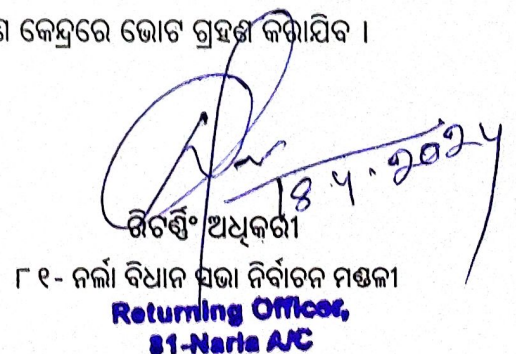 କେନ୍ଦ୍ରରେ ଭୋଟ ଗ୍ରହଣ କରାଯିବ ।
18.4.2024
ରିଟର୍ଣ୍ଣିଂ ଅଧିକାରୀ
୮୧- ନର୍ଲା ବିଧାନ ସଭା ନିର୍ବାଚନ ମଣ୍ଡଳୀ
Returning Officer,
81-Narla A/C